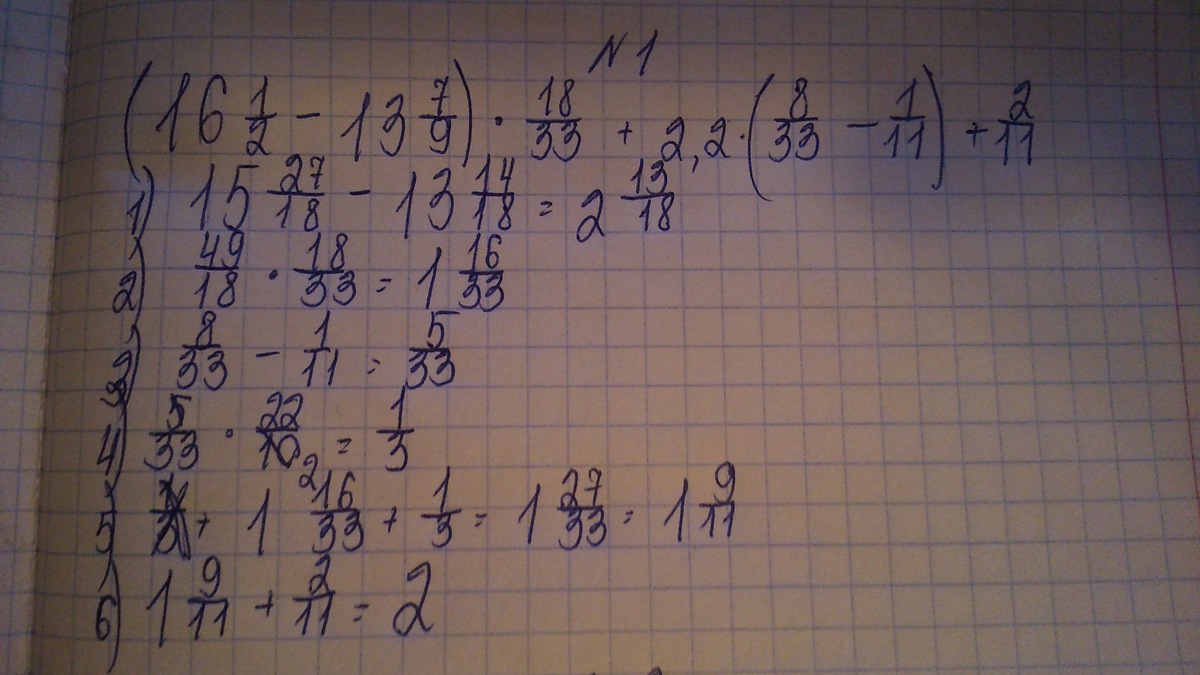 N 1
(16 1/2 - 13 7/9) · 18/33 + 2,2 · (8/33 - 1/11) + 2/11
1) 15 27/18 - 13 14/18 = 2 13/18
2) 49/18 · 18/33 = 1 16/33
3) 8/33 - 1/11 = 5/33
4) 5/33 · 22/10 2 = 1/3
5) + 1 16/33 + 1/3 = 1 27/33 = 1 9/11
6) 1 9/11 + 2/11 = 2